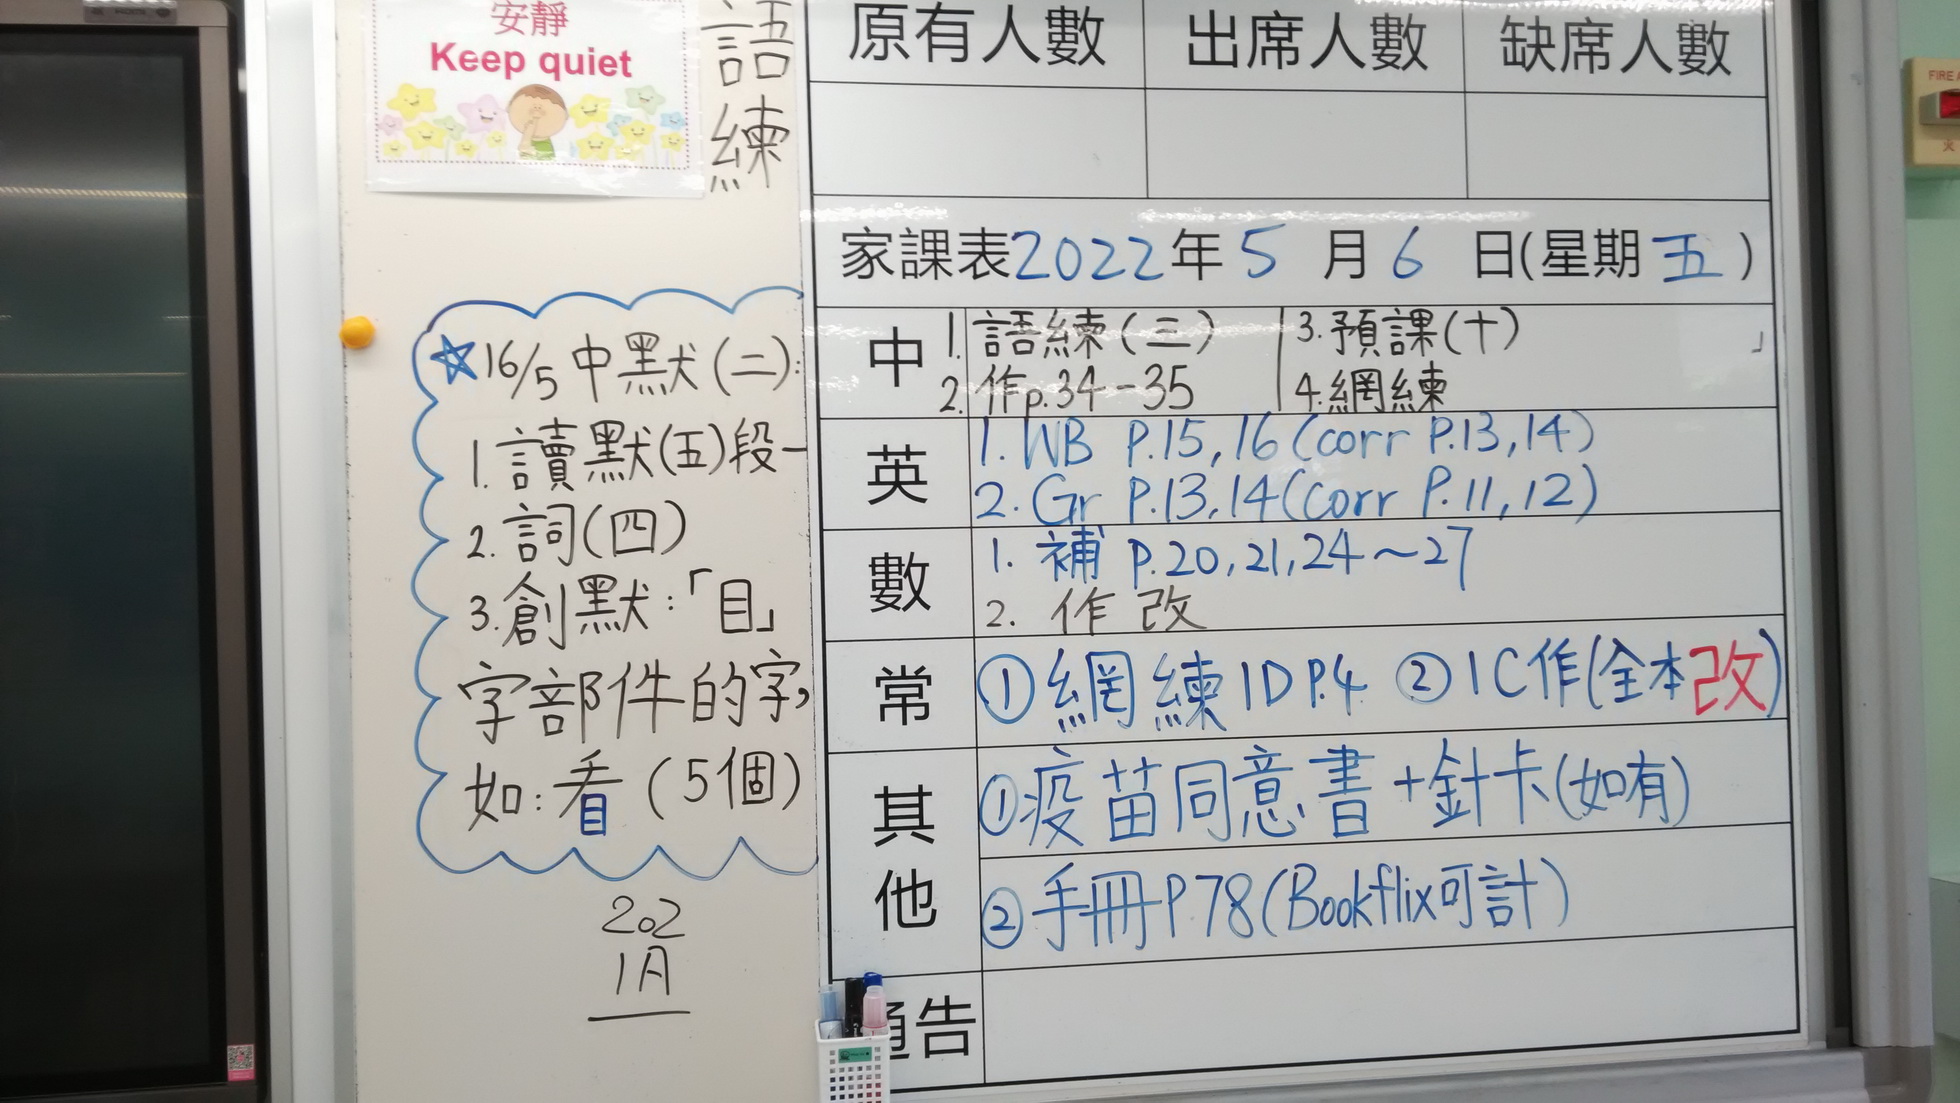 安靜
Keep quiet
語
練
☆16/5中默(二):
1.讀默(五)段一
2.詞(四)
3.創默:「目」
字部件的字,
如:看(5個)
202
1A
原有人數 出席人數 缺席人數
家課表2022年5月6日(星期五)
中 1.語練(三) 3.預課(十)
2.作p.34-35 4.網練
英 1. WB P.15,16(corr P.13,14)
2. Gr P.13,14(corr P.11,12)
數 1. 補 P.20,21,24~27
2. 作改
常 ①網練1D P.4 ②1C作(全本改)
其他 ①疫苗同意書+針卡(如有)
②手冊P78(Bookflix可計)
通告
FIRE
火